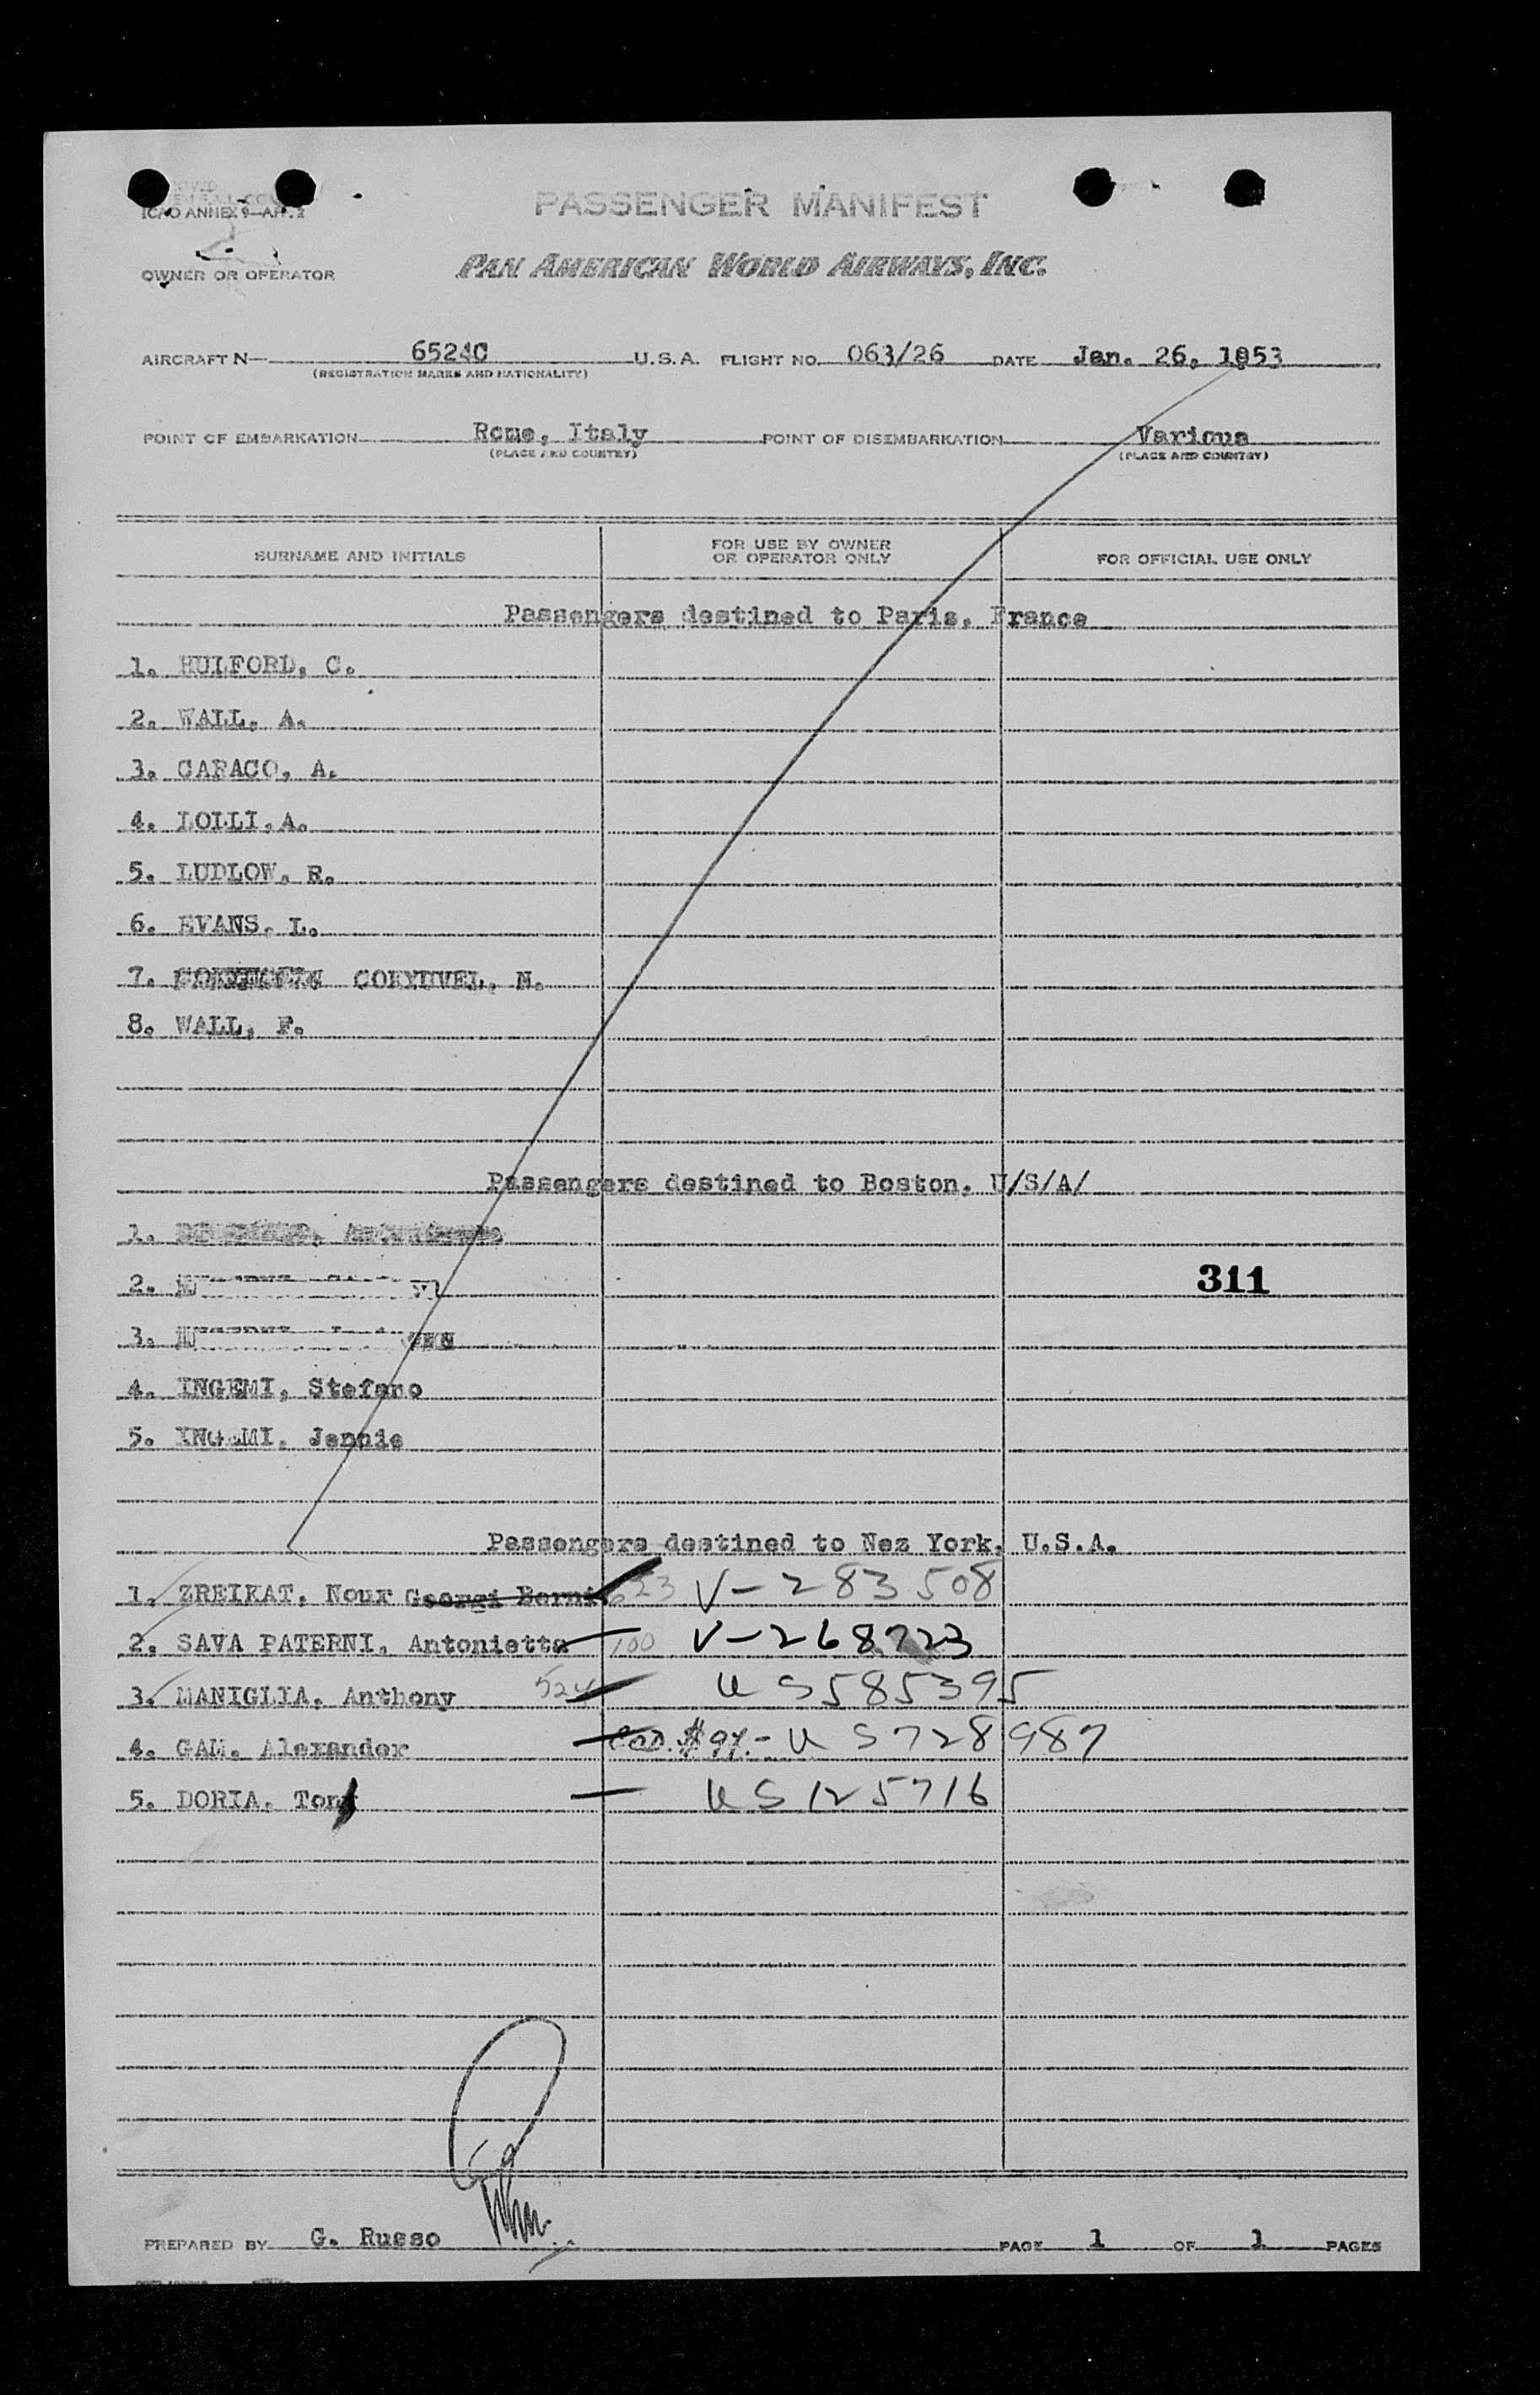 ICAO ANNEX 9—APP. 2
PASSENGER MANIFEST
OWNER OR OPERATOR
PAN AMERICAN WORLD AIRWAYS, INC.
AIRCRAFT N— 6524C U.S.A. FLIGHT NO. 063/26 DATE Jan. 26, 1953
(REGISTRATION MARKS AND NATIONALITY)
POINT OF EMBARKATION Rome, Italy POINT OF DISEMBARKATION Various
(PLACE AND COUNTRY) (PLACE AND COUNTRY)
SURNAME AND INITIALS FOR USE BY OWNER OR OPERATOR ONLY FOR OFFICIAL USE ONLY
Passengers destined to Paris, France
1. HULFORD, C.
2. WALL, A.
3. CARACO, A.
4. LOLLI, A.
5. LUDLOW, R.
6. EVANS, L.
7. N.
8. WALL, F.
Passengers destined to Boston, U/S/A/
1.
2.
311
3.
4. INGEMI, Stefano
5. INGEMI, Jennie
Passengers destined to Nez York, U.S.A.
1. ZREIKAT, Nour Georgi 623 V-283508
2. SAVA PATERNI, Antonietta 100 V-268723
3. MANIGLIA, Anthony 524 US585395
4. GAM, Alexander US728987
5. DORIA, Tony US125716
PREPARED BY G. Russo PAGE 1 OF 1 PAGES